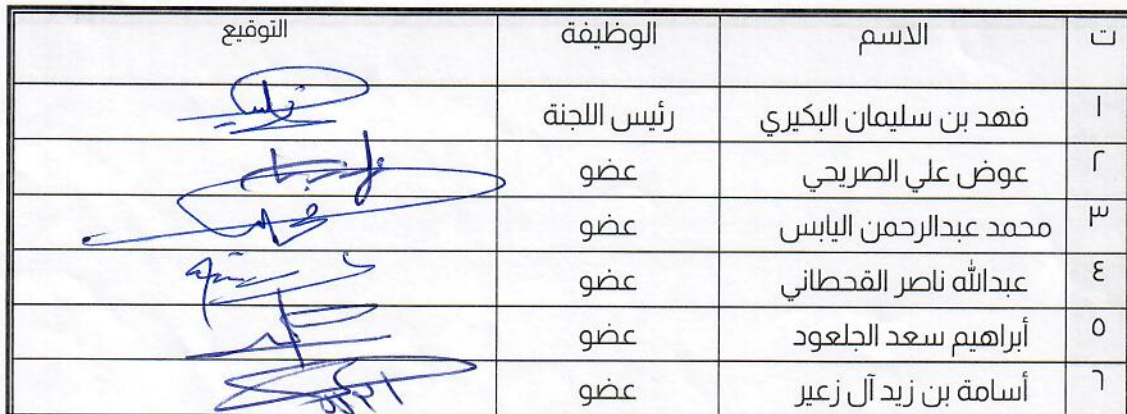 ت الاسم الوظيفة التوقيع
١ فهد بن سليمان البكيري رئيس اللجنة
٢ عوض علي الصريحي عضو
٣ محمد عبدالرحمن اليابس عضو
٤ عبدالله ناصر القحطاني عضو
٥ أبراهيم سعد الجلعود عضو
٦ أسامة بن زيد آل زعير عضو